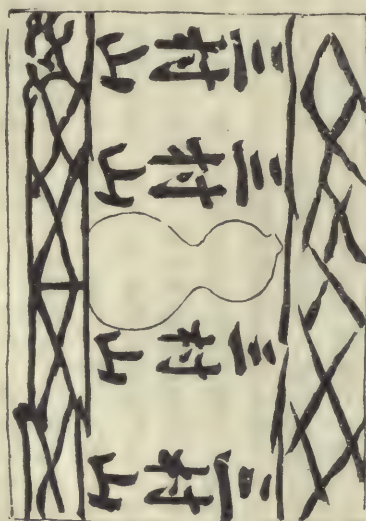 三村山
三村山
三村山
三村山